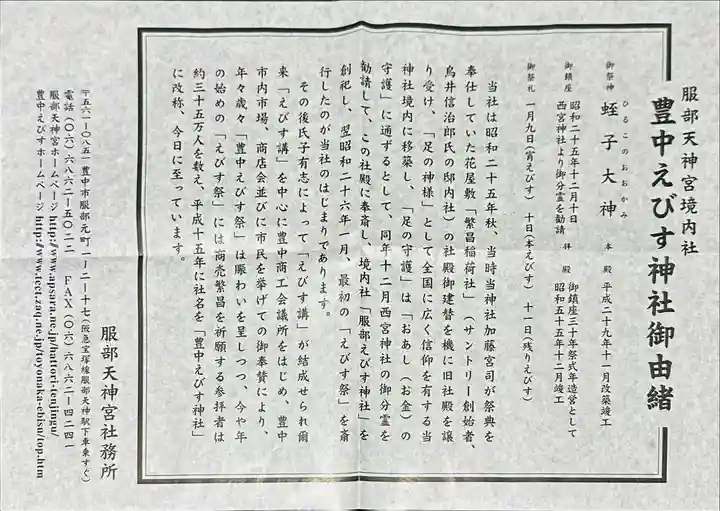 服部天神宮境内社
豊中えびす神社御由緒
御祭神　蛭子大神　本殿　平成二十九年十一月改築竣工
ひるこのおおかみ
御鎮座　昭和二十五年十二月十日　拝殿　御鎮座三十年祭式年造営として
西宮神社より御分霊を勧請　昭和五十五年十二月竣工
御祭礼　一月九日（宵えびす）　十日（本えびす）　十一日（残りえびす）
当社は昭和二十五年秋、当時当神社加藤宮司が祭典を
奉仕していた花屋敷「繁昌稲荷社」（サントリー創始者、
鳥井信治郎氏の邸内社）の社殿御建替を機に旧社殿を譲
り受け、「足の神様」として全国に広く信仰を有する当
神社境内に移築し、「足の守護」は「おあし（お金）の
守護」に通ずるとして、同年十二月西宮神社の御分霊を
勧請して、この社殿に奉斎し、境内社「服部えびす神社」を
創祀し、翌昭和二十六年一月、最初の「えびす祭」を斎
行したのが当社のはじまりであります。
その後氏子有志によって「えびす講」が結成せられ爾
来「えびす講」を中心に豊中商工会議所をはじめ、豊中
市内市場、商店会並びに市民を挙げての御奉賛により、
年々歳々「豊中えびす祭」は賑わいを呈しつつ、今や年
の始めの「えびす祭」には商売繁昌を祈願する参拝者は
約三十五万人を数え、平成十五年に社名を「豊中えびす神社」
に改称、今日に至っています。
服部天神宮社務所
〒五六一ー〇八五一 豊中市服部元町一ー二ー十七（阪急宝塚線服部天神駅下車東すぐ）
電話（〇六）六八六二ー五〇二二　FAX（〇六）六八六二ー四二四一
服部天神宮ホームページ http://www.apsara.ne.jp/hattori-tenjingu/
豊中えびすホームページ http://www.tcct.zaq.ne.jp/toyonaka-ebisu/top.htm